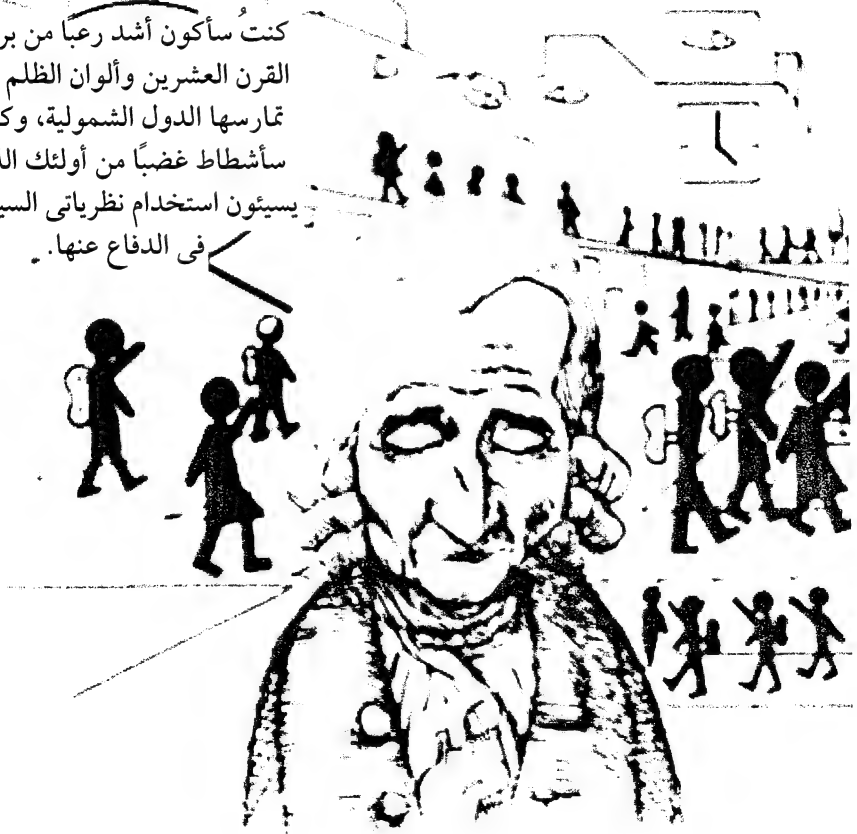 كنتُ سأكون أشد رعبًا من بر
القرن العشرين وألوان الظلم
تمارسها الدول الشمولية، وك
سأشطاط غضبًا من أولئك الـ
يسيئون استخدام نظرياتى السيـ
فى الدفاع عنها.